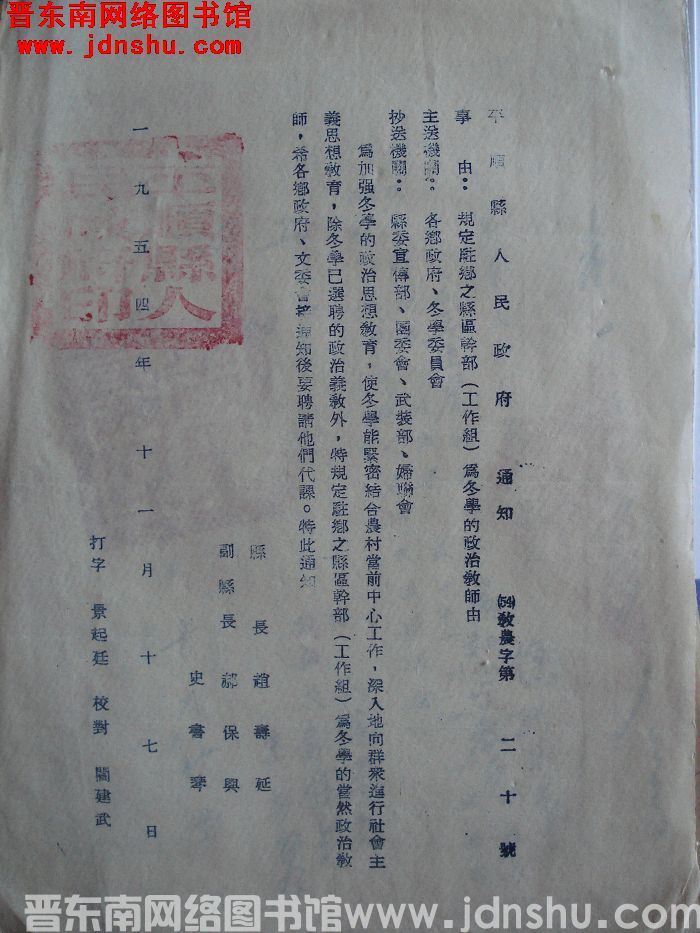 晋东南网络图书馆
www.jdnshu.com
平順縣人民政府 通知 (54)教農字第二十號
事 由：規定駐鄉之縣區幹部（工作組）爲冬學的政治教師由
主送機關：各鄉政府、冬學委員會
抄送機關：縣委宣傳部、團委會、武裝部、婦聯會
爲加强冬學的政治思想教育，使冬學能緊密結合農村當前中心工作，深入地向群衆進行社會主
義思想教育，除冬學已選聘的政治義教外，特規定駐鄉之縣區幹部（工作組）爲冬學的當然政治教
師，希各鄉政府、文委會接通知後要聘請他們代課。特此通知
縣 長 趙壽延
副縣長 郝保興
史書琴
一九五四年十一月十七日
打字 景起廷 校對 閻建武
晋东南网络图书馆www.jdnshu.com